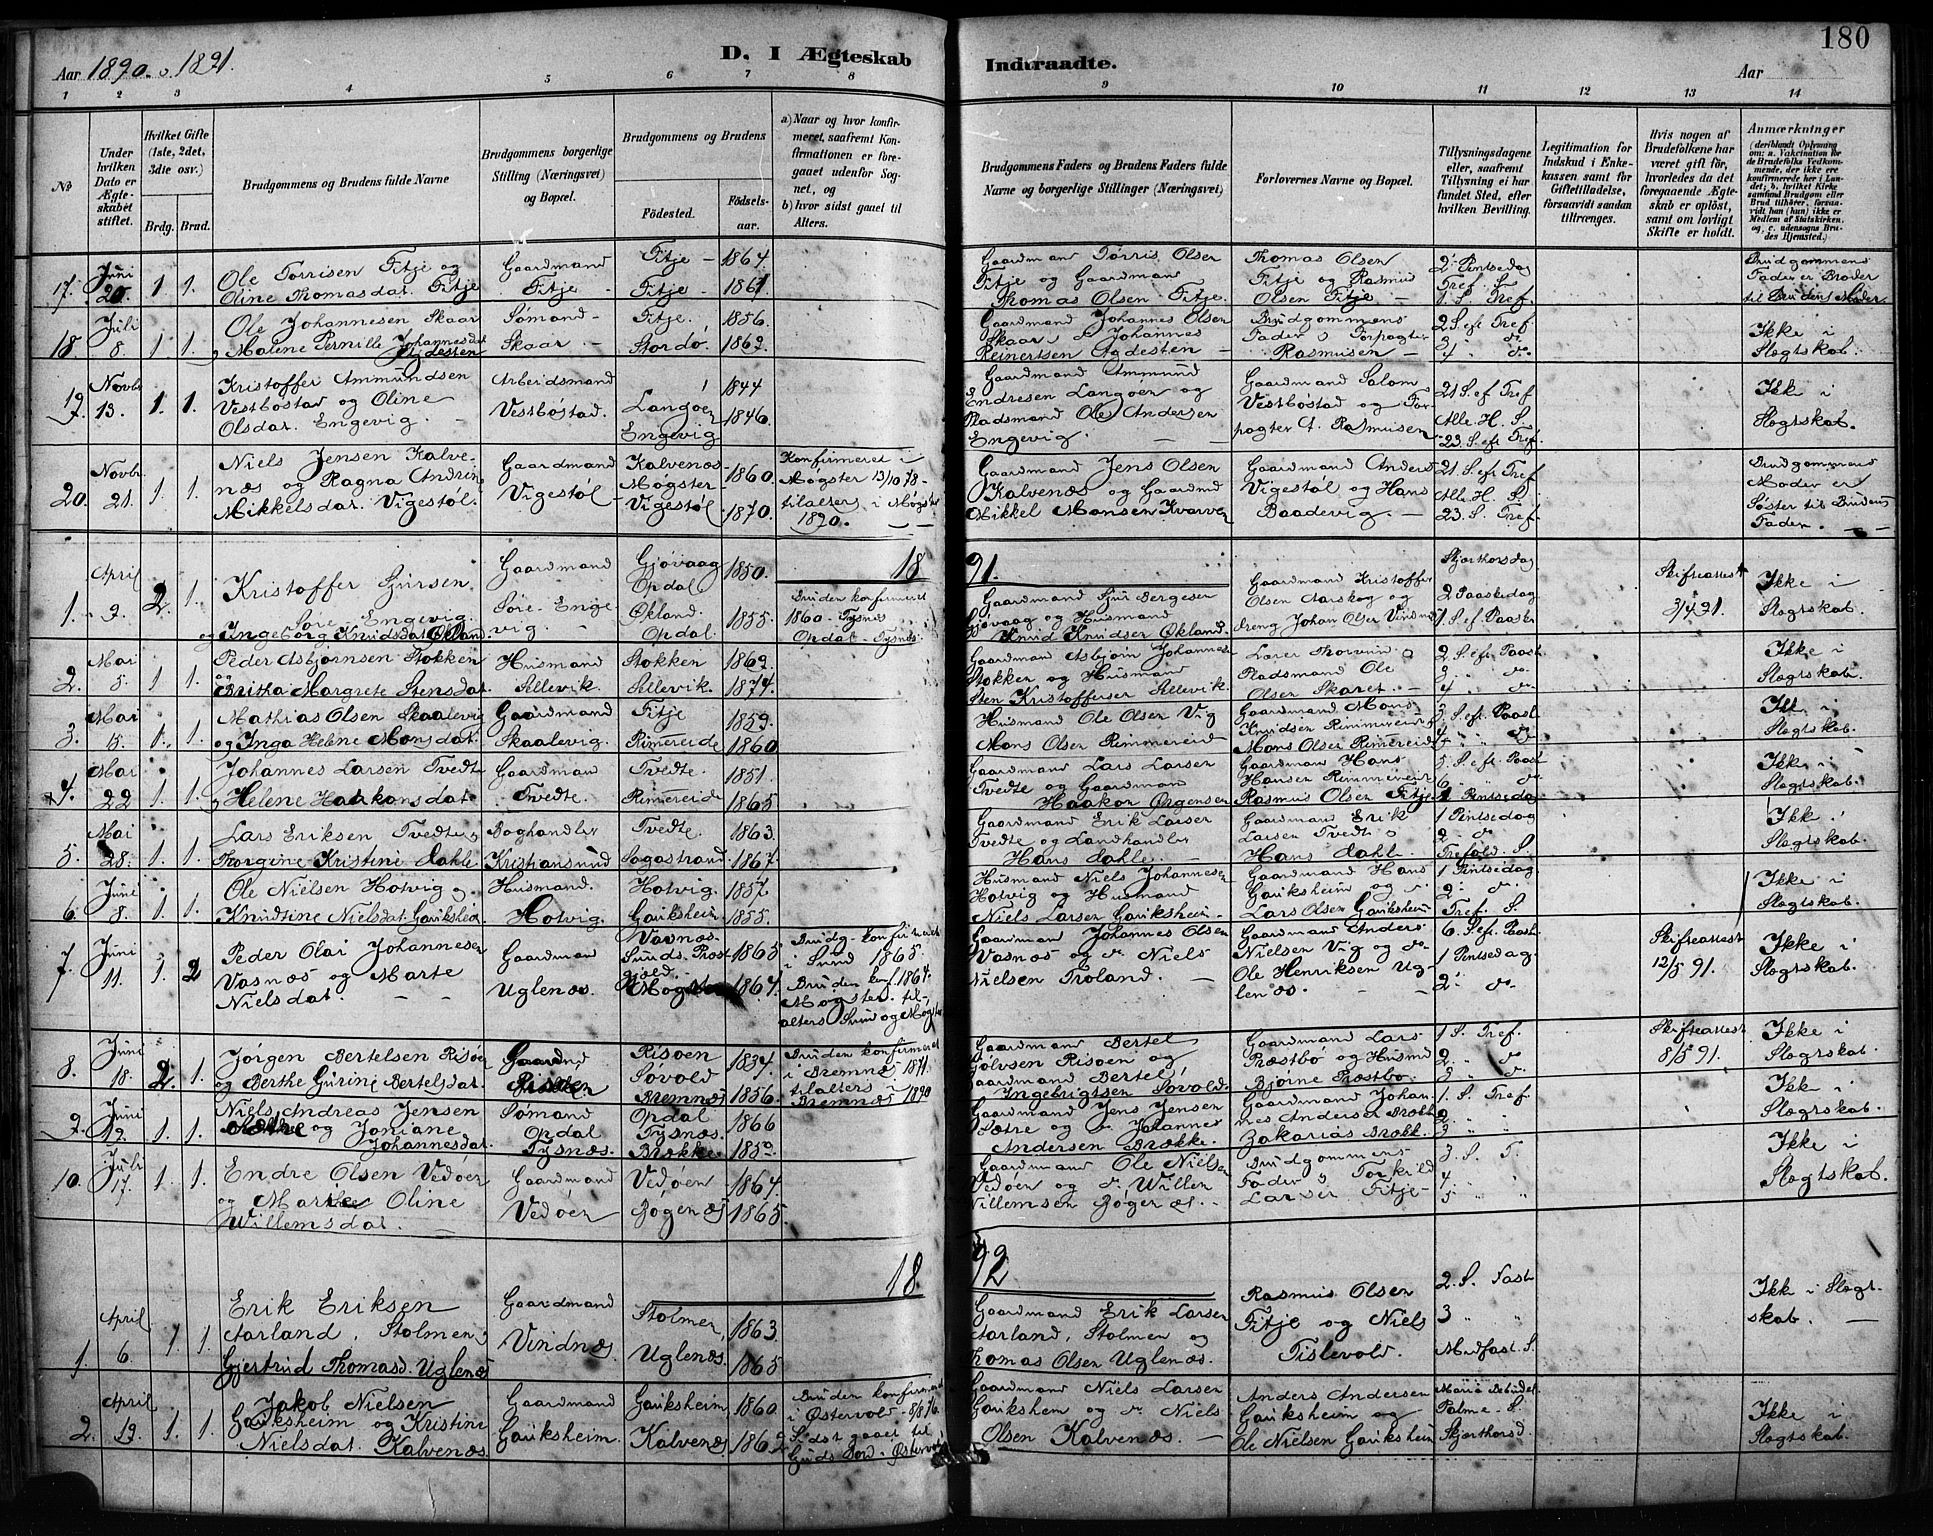 180
Aar 1890. o 1891.
D. I Ægteskab Indtraadte.
Aar
1 2 3 4 5 6 7 8 9 10 11 12 13 14
No
Under hvilken Dato er Ægteskabet stiftet.
Hvilket Gifte (1ste, 2det, 3die osv.)
Brdg. Brud.
Brudgommens og Brudens fulde Navne
Brudgommens borgerlige Stilling (Næringsvei) og Bopæl.
Brudgommens og Brudens
Fødested.
Fødselsaar.
a) Naar og hvor konfirmeret, saafremt Konfirmationen er foregaaet udenfor Sognet, og
b) hvor sidst gaaet til Alters.
Brudgommens Faders og Brudens Faders fulde Navne og borgerlige Stillinger (Næringsvei)
Forlovernes Navne og Bopæl.
Tillysningsdagene eller, saafremt Tillysning ei har fundet Sted, efter hvilken Bevilling.
Legitimation for Indskud i Enkekassen samt for Giftetilladelse, forsaavidt saadan tiltrænges.
Hvis nogen af Brudefolkene har været gift før, hvorledes da det foregaaende Ægteskab er opløst, samt om lovligt Skifte er holdt.
Anmærkninger (deriblandt Oplysning om: a. Vakcination for de Brudefolks Vedkommende, der ikke ere konfirmerede her i Landet; b. hvilket Kirkesamfund Brudgom eller Brud tilhører, forsaavidt han (hun) ikke er Medlem af Statskirken, og, c. udensogns Brudes Hjemsted.)
17. Juni 20. 1 1. Ole Torrisen Fitje og
Oline Thomasdat. Fitje
Gaardmand
Fitje -
Fitje - 1864
Fitje - 1861
Gaardman Tørris Olsen
Fitje og Gaardman
Thomas Olsen Fitje.
Thomas Olsen
Fitje og Rasmus
Olsen Fitje -
2 Pintsedag
Tref. S.
1 S. Tref.
Brudgommens
Fader er Broder
til Brudens Moder.
18 Juli 8. 1 1. Ole Johannesen Skaar
o Malene Pernille Johannesdat
Agdesten
Sømand -
Skaar -
Fitje. 1856.
Stordø. 1862.
Gaardmand Johannes Olsen
Skaar o Johannes
Reinertsen Agdesten -
Brudgommens
Fader o Forpagter
Rasmusen -
2 S. ef Tref.
3 " do
4 " do
Ikke i
Slægtskab.
19. Novbr 13. 1. 1. Kristoffer Ammundsen
Vestbøstad og Oline
Olsdat. Engevig. -
Arbeidsmand
Vestbøstad.
Langøen 1844
Engevig 1846.
Gaardmand Ammund
Endresen Langøen og
Pladsmand Ole Andersen
Engevig. -
Gaardmand Salom.
Vestbøstad og For
pagter A. Rasmusen
21 S. ef Tref
Alle H. S.
23. S. eft Tref.
Ikke i
Slægtskab.
20. Novbr 21. 1. 1. Niels Jensen Kalve-
næs og Ragna Andrin
Mikkelsdat. Vigestøl.
Gaardmand
Vigestøl -
Kalvenæs
Møgster 1860.
Vigestøl. 1870.
Konfirmeret i
Møgster 13/10 78-
tilalters i Møgster
1890. -
Gaardmand Jens Olsen
Kalvenæs og Gaardmd
Mikkel Monsen Kvarven
Gaardmand Anders
Vigestøl og Hans
Baadevig. -
21. S. ef Tref.
Alle H. S.
23. S. Tref.
Brudgommens
Moder er
Søster til Brudens
Fader. -
1891.
1. April 9. 2. 1. Kristoffer Sjursen
Søre Engevig
og Ingeborg Knudsdat Økland
Gaardmand
Søre-Enge
vig. -
Gjøvaag
Opdal 1850.
Økland.
Opdal. 1855
Bruden konfirmeret
1860 - Tysnæs
Opdal - Tysnæs.
Gaardmand Sjur Bergesen
Gjøvaag og Husmand
Knud Knudsen Økland.
Gaardmand Kristoffer
Olsen Aarskog og
dreng Johan Olsen Vindnæs
Skjærthorsdag
2 Paaskedag
1 S. ef Paaske
Skifteattest
3/4 91.
Ikke i
Slægtskab.
2. Mai 5. 1 1. Peder Asbjørnsen Stokken
og Britha Margrete Stensdat.
Husmand
Sellevik.
Stokken 1862
Sellevik. 1874.
Gaardmand Asbjørn Johannes
Stokken og Husmand
Sten Kristoffersen Sellevik.
Lærer Thorvun o
Pladsmand Ole
Olsen Skaret. -
2 S. ef Paaske
3 " do
4 " do
Ikke i
Slægtskab.
3. Mai 15. 1. 1. Mathias Olsen Skaalevig
og Inga Helene Monsdat.
Gaardmand
Skaalevig.
Fitje 1859.
Rimereide 1860
Husmand Ole Olsen Vig
Mons Olsen Rimmereid
Gaardmand Mons
Knudsen Rimmereid o
Mons Olsen Rimereide
3 S. ef Paaske
4 " do
Ikke i
Slægtskab.
4. Mai 22 1. 1. Johannes Larsen Tvedte
o Helene Haakonsdat.
Gaardmand
Tvedte.
Tvedte. 1851.
Rimereide 1865
Gaardmand Lars Larsen
Tvedte og Gaardman
Haakon Ørgensen
Gaardman Hans
Hansen Rimmereid
Rasmus Olsen Fitje
5. S. eft. Paaske
6. " do
1 Pintsedag
Ikke i
Slægtskab.
5. Mai 28. 1. 1. Lars Eriksen Tvedte o
Thorgine Kristine Dahle
Boghandler
Kristiansund
Tvedte. 1863.
Sagastrand 1867.
Gaardmand Erik Larsen
Tvedte og Landhandler
Hans Dahle. -
Gaardmand Erik
Larsen Tvedt o
Hans Dahle.
1 Pintsedag
2 " do
Trefold. S.
Ikke i
Slægtskab.
6. Juni 8. 1. 1. Ole Nielsen Hotvig o
Knudtine Nielsdat. Gauksheim
Husmand.
Hotvig.
Hotvig. 1857.
Gauksheim 1855.
Husmand Niels Johannesen
Hotvig og Husmand
Niels Larsen Gauksheim -
Gaardmand Hans
Gauksheim og do
Lars Olsen Gauksheim
1 Pintsedag
2 " do
Tref. S.
Ikke i
Slægtskab.
7. Juni 11. 1. 2 Peder Olai Johannesen
Vasnæs og Marte
Nielsdat. - -
Gaardman
Uglenæs.
Vasnæs -
Sunds Præst
gjeld. 1865
Møgster 1864.
Brudg. konfirmeret
i Sund 1865.
Bruden konf. 1864.
Møgster. til-
alters Sund og Møgster
Gaardmand Johannes Olsen
Vasnæs og do Niels
Nielsen Troland. -
Gaardmand Anders
Nielsen Vig og do
Ole Henriksen Ug-
lenæs. -
6. S. ef. Paaske
1 Pintsedag.
2 " do
Skifteattest
12/5 91.
Ikke i
Slægtskab.
8. Juni 18. 2. 1. Jørgen Bertelsen Risøen
og Berthe Gurine Bertelsdat.
Gaardmd
Risøen
Risøen 1834.
Søvold
Bremnæs 1856.
Bruden konfirmeret
i Bremnæs 1871.
tilalters i
Bremnæs 1890
Gaardmand Bertel
Sølvsen Risøen og
Gaardmand Bertel
Ingebrigtsen Søvold.
Gaardmand Lars
Præstbø og Husmd
Bjørne Præstbø
1 S. Tref.
2 " do
3 " do
Skifteattest
8/5 91.
Ikke i
Slægtskab.
9. Juni 19. 1. 1. Niels Andreas Jensen
Sætre og Joniane
Johannesdat.
Sømand
Opdal
Tysnæs.
Opdal 1866
Tysnæs.
Brække. 1859.
Gaardmand Jens Jensen
Sætre og do Johannes
Andersen Brække.
Gaardmand Johan
nes Andersen Brækk
Zakarias Brækk.
1. S. Tref
2. "
3. " "
Ikke i
Slægtskab.
10. Juli 17. 1. 1. Endre Olsen Vedøen
og Marthe Oline
Willemsdat. -
Gaardmand
Vedøen
Vedøen 1864.
Bøgenæs 1865.
Gaardmand Ole Nielsen
Vedøen og do Willem
Willemsen Bøgenæs. -
Brudgommens
Fader o Torkild
Larsen Fitje -
3. S. T.
4. "
5 " "
Ikke i
Slægtskab.
1892
1. April 6. 1 1. Erik Eriksen
Aarland, Stolmen o
Gjertrud Thomasd. Uglenæs
Gaardmand
Vindnæs.
Stolmen, 1863.
Uglenæs. 1865
Gaardmand Erik Larsen
Aarland, Stolmen og
Thomas Olsen Uglenæs.
Rasmus Olsen
Fitje og Niels
Tislevold.
2. S. Fast
3 " "
Midfast. S.
Ikke i Slægt-
skab. -
2. April 19. 1. 1. Jakob Nielsen
Gauksheim og Kristine
Nielsdat. Kalvenæs.
Gaardmand
Gauksheim.
Gauksheim 1860
Kalvenæs 1862
Bruden konfirmeret
i Østervold - 8/8 76.
Sidst gaaet til
Guds Bord - Østervold
Gaardmand Niels Larsen
Gauksheim og do Niels
Olsen Kalvenæs -
Anders Andersen
Gauksheim og
Ole Nielsen Gauksheim
Maria Bebudel
Palme-S.
Skjærthorsd.
Ikke i
Slægtskab.